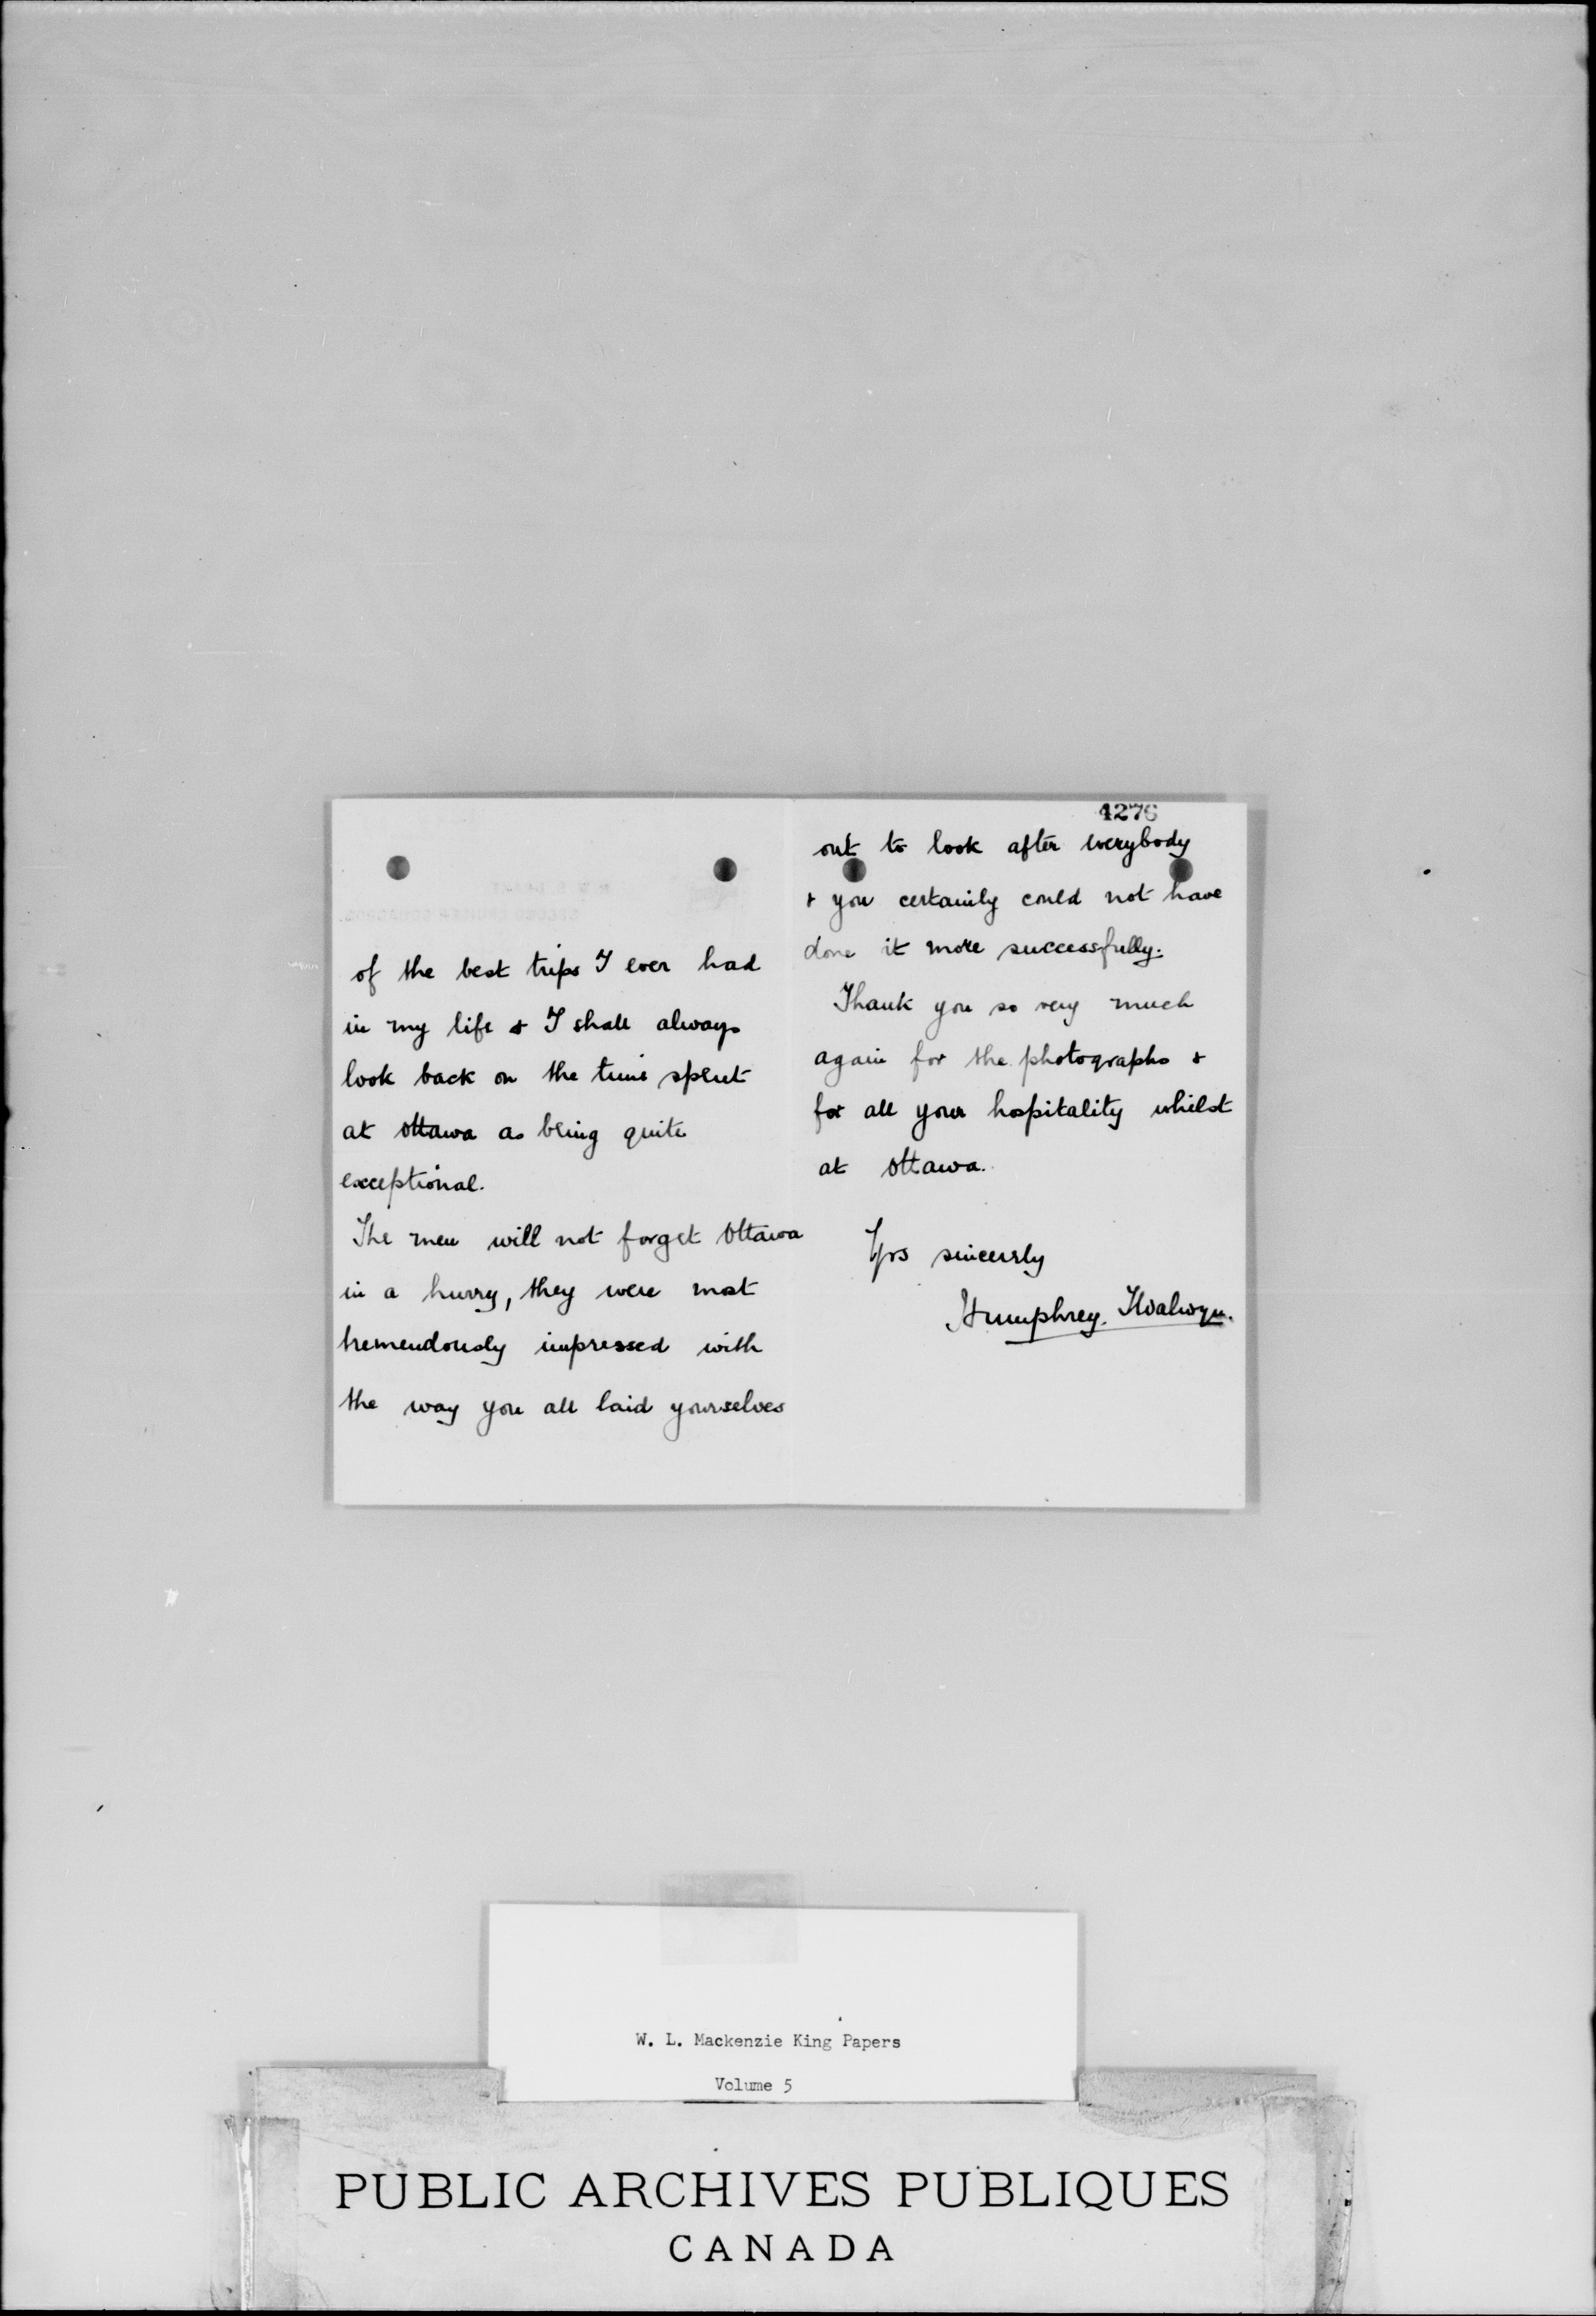 of the best trips I ever had
in my life & I shall always
look back on the time spent
at Ottawa as being quite
exceptional.
The men will not forget Ottawa
in a hurry, they were most
tremendously impressed with
the way you all laid yourselves
4276
out to look after everybody
& you certainly could not have
done it more successfully.
Thank you so very much
again for the photographs &
for all your hospitality whilst
at Ottawa.
Yrs sincerely
Humphrey T Walwyn.
W. L. Mackenzie King Papers
Volume 5
PUBLIC ARCHIVES PUBLIQUES
CANADA